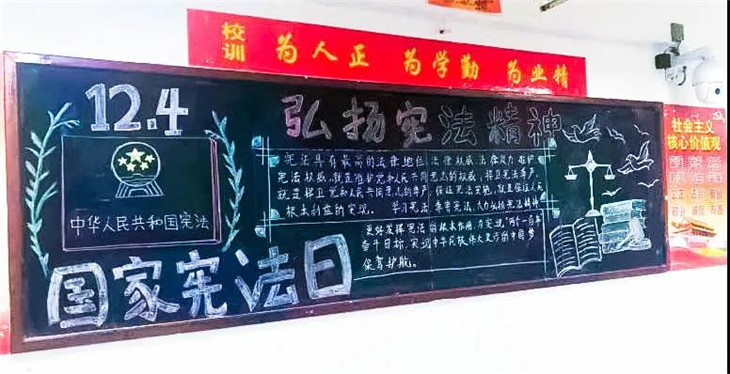 校训
为人正 为学勤 为业精
12.4
弘扬宪法精神
中华人民共和国宪法
国家宪法日
宪法具有最高的法律地位、法律权威、法律效力。维护
宪法权威,就是维护党和人民共同意志的权威。捍卫宪法尊严,
就是捍卫党和人民共同意志的尊严。保证宪法实施,就是保证人民
根本利益的实现。 学习宪法 尊崇宪法,大力弘扬宪法精神
更好发挥宪法的根本作用,为实现“两个一百年
奋斗目标,实现中华民族伟大复兴的中国梦
保驾护航。
社会主义
核心价值观